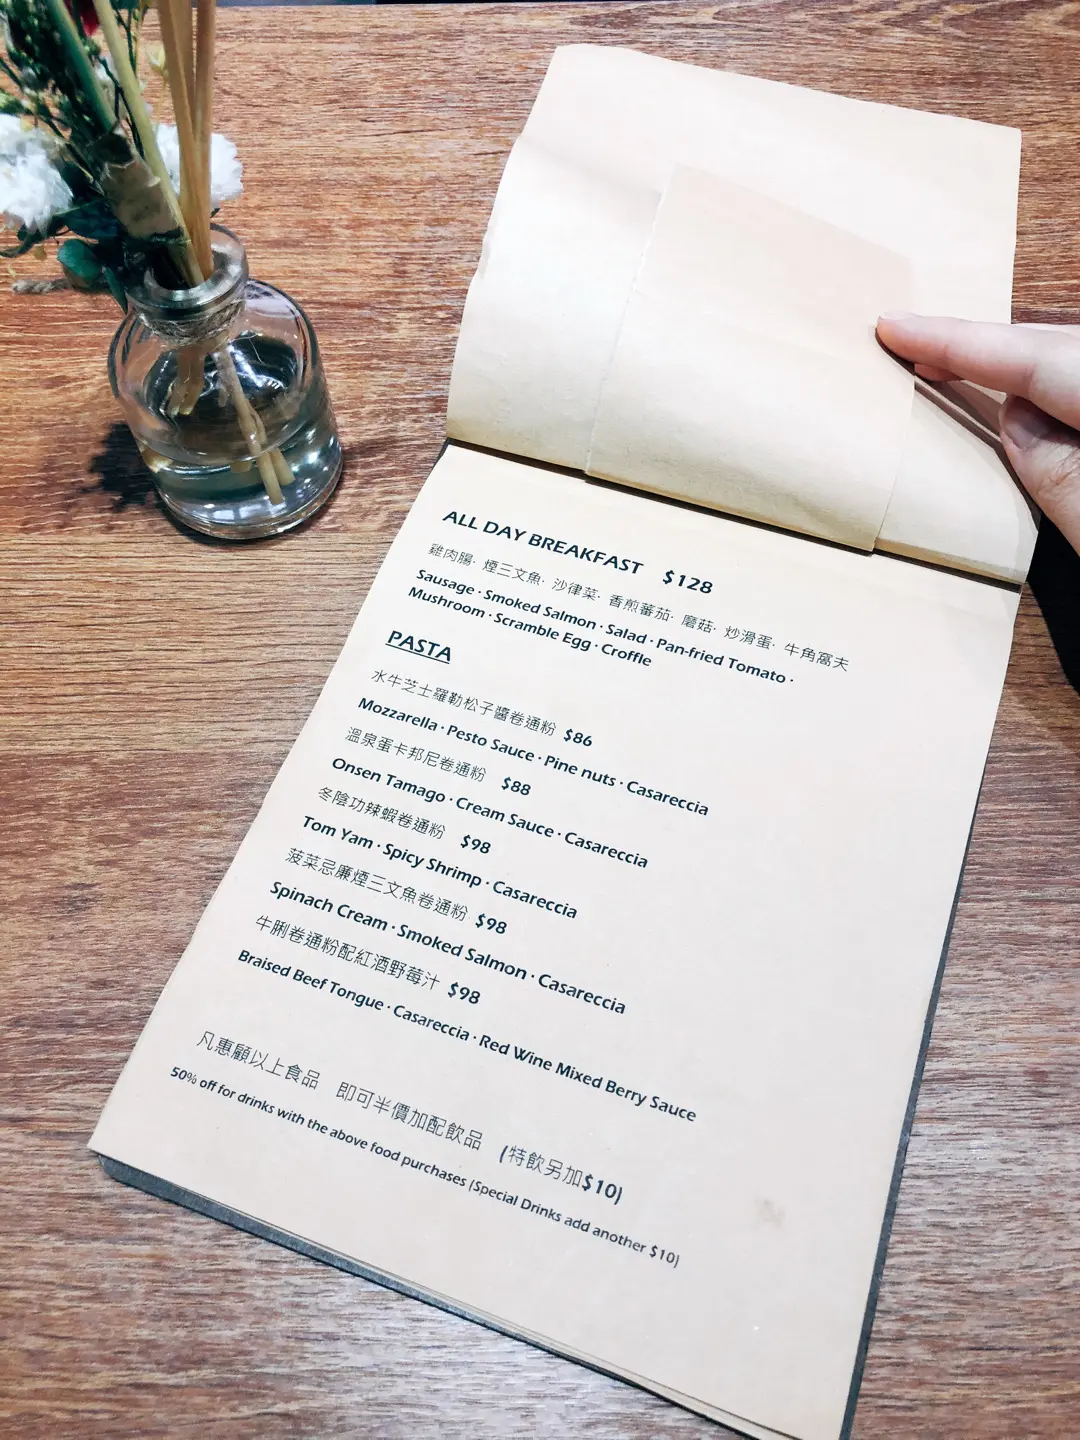 ALL DAY BREAKFAST $128
雞肉腸· 煙三文魚· 沙律菜· 香煎蕃茄· 磨菇· 炒滑蛋· 牛角窩夫
Sausage · Smoked Salmon · Salad · Pan-fried Tomato ·
Mushroom · Scramble Egg · Croffle
PASTA
水牛芝士羅勒松子醬卷通粉 $86
Mozzarella · Pesto Sauce · Pine nuts · Casareccia
溫泉蛋卡邦尼卷通粉 $88
Onsen Tamago · Cream Sauce · Casareccia
冬陰功辣蝦卷通粉 $98
Tom Yam · Spicy Shrimp · Casareccia
菠菜忌廉煙三文魚卷通粉 $98
Spinach Cream · Smoked Salmon · Casareccia
牛脷卷通粉配紅酒野莓汁 $98
Braised Beef Tongue · Casareccia · Red Wine Mixed Berry Sauce
凡惠顧以上食品 即可半價加配飲品 (特飲另加$10)
50% off for drinks with the above food purchases (Special Drinks add another $10)